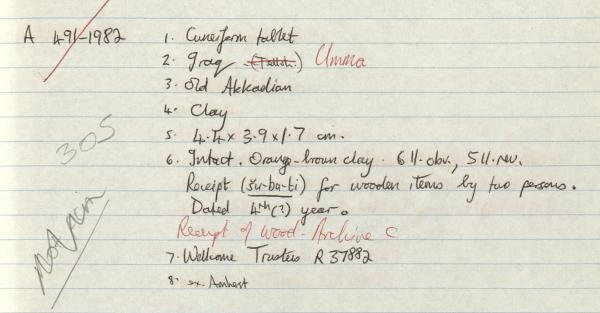 A 491-1982
1. Cuneiform tablet
2. Iraq Umma
3. Old Akkadian
4. Clay
5. 4.4 x 3.9 x 1.7 cm.
6. Intact. Orange-brown clay. 6 ll. obv., 5 ll. rev.
Receipt (šu-ba-ti) for wooden items by two persons.
Dated 4th(?) year.
Receipt of wood - Archive C
7. Wellcome Trustees R 37882
8. ex. Amherst
305